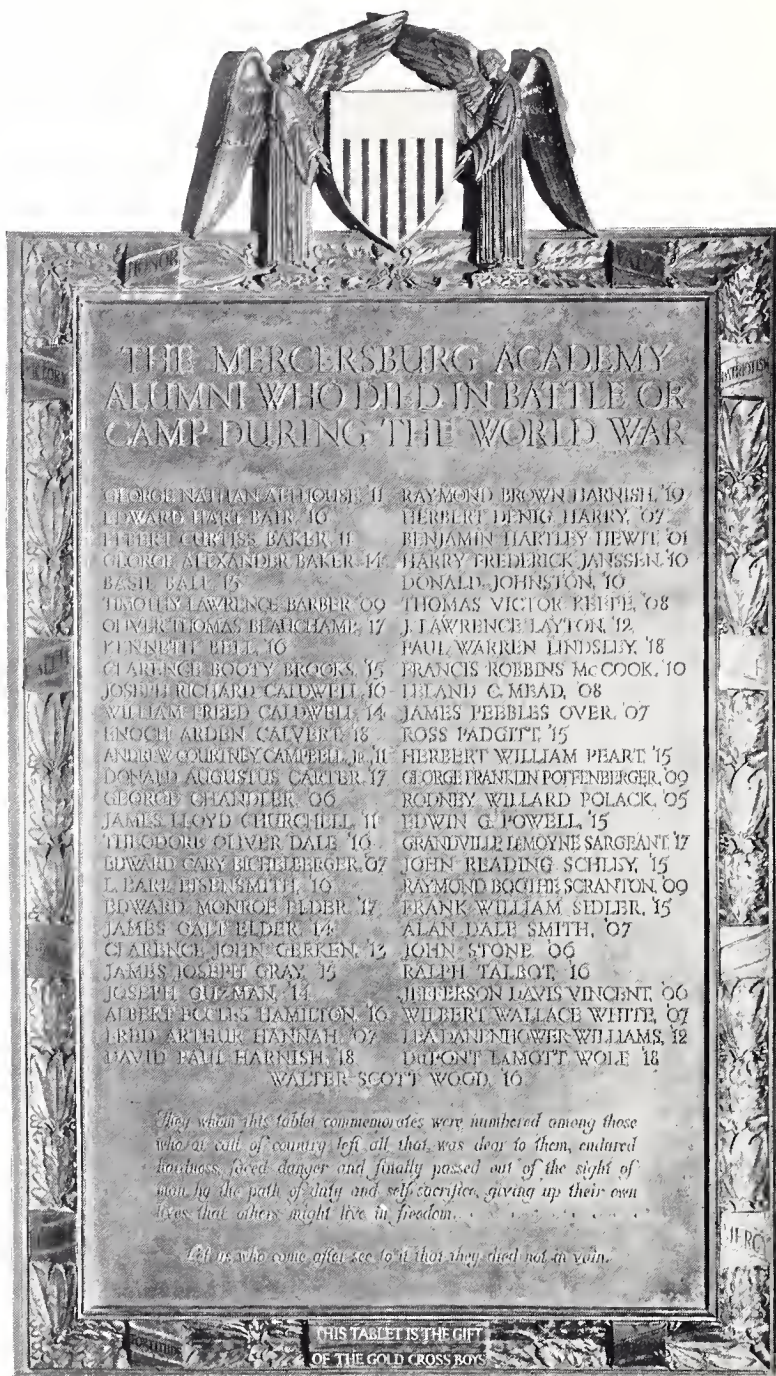 HONOR
VALOR
VICTORY
PATRIOTISM
THE MERCERSBURG ACADEMY
ALUMNI WHO DIED IN BATTLE OR
CAMP DURING THE WORLD WAR
GEORGE NATHAN ALTHOUSE, '11
EDWARD HART BAIR, '16
ELBERT CURTISS BAKER, '11
GEORGE ALEXANDER BAKER, '14
BASIL BALL, '15
TIMOTHY LAWRENCE BARBER, '09
OLIVER THOMAS BEAUCHAMP, '17
KENNETH BELL, '16
CLARENCE BOOTY BROOKS, '15
JOSEPH RICHARD CALDWELL, '16
WILLIAM FREED CALDWELL, '14
ENOCH ARDEN CALVERT, '18
ANDREW COURTNEY CAMPBELL, JR., '11
DONALD AUGUSTUS CARTER, '17
GEORGE CHANDLER, '06
JAMES LLOYD CHURCHELL, '11
THEODORE OLIVER DALE, '16
EDWARD CARY EICHELBERGER, '07
L. EARL EISENSMITH, '16
EDWARD MONROE ELDER, '17
JAMES GALT ELDER, '14
CLARENCE JOHN GERKEN, '13
JAMES JOSEPH GRAY, '15
JOSEPH GUZMAN, '14
ALBERT ECCLES HAMILTON, '16
FRED ARTHUR HANNAH, '07
DAVID PAUL HARNISH, '18
RAYMOND BROWN HARNISH, '19
HERBERT DENIG HARRY, '07
BENJAMIN HARTLEY HEWIT, '01
HARRY FREDERICK JANSSEN, '10
DONALD JOHNSTON, '10
THOMAS VICTOR KEEFE, '08
J. LAWRENCE LAYTON, '12
PAUL WARREN LINDSLEY, '18
FRANCIS ROBBINS McCOOK, '10
LELAND C. MEAD, '08
JAMES PEEBLES OVER, '07
ROSS PADGITT, '15
HERBERT WILLIAM PEART, '15
GEORGE FRANKLIN POFFENBERGER, '09
RODNEY WILLARD POLACK, '05
EDWIN G. POWELL, '15
GRANDVILLE LEMOYNE SARGEANT, '17
JOHN READING SCHLEY, '15
RAYMOND BOOTHE SCRANTON, '09
FRANK WILLIAM SIDLER, '15
ALAN DALE SMITH, '07
JOHN STONE, '06
RALPH TALBOT, '16
JEFFERSON DAVIS VINCENT, '06
WILBERT WALLACE WHITE, '07
LEA DANENHOWER WILLIAMS, '12
DuPONT LAMOTT WOLE, '18
WALTER SCOTT WOOD, '16
They whom this tablet commemorates were numbered among those
who at call of country left all that was dear to them, endured
hardness, faced danger and finally passed out of the sight of
men by the path of duty and self sacrifice, giving up their own
lives that others might live in freedom.
Let us who come after see to it that they died not in vain.
MERCY
FORTITUDE
THIS TABLET IS THE GIFT
OF THE GOLD CROSS BOYS